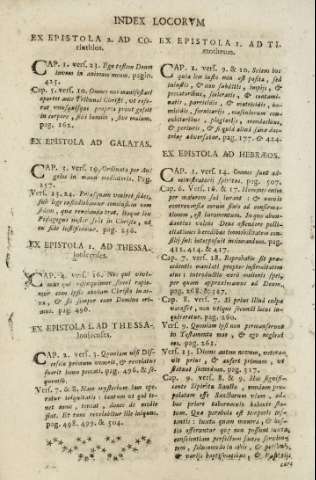 INDEX LOCORVM
EX EPISTOLA 2. AD CO-
rinthios.
CAP. 1. vers. 23. Ego testem Deum
invoco in animam meam. pagin.
425.
Cap. 5. vers. 10. Omnes nos manifestari
oportet ante Tribunal Christi, ut refe-
rat unusquisque propria prout gessit
in corpore, sive bonum, sive malum.
pag. 162.
EX EPISTOLA AD GALATAS.
CAP. 3. vers. 19. Ordinata per An-
gelos in manu mediatoris. Pag.
257.
Vers. 23. 24. Priusquam veniret fides,
sub lege custodiebamur conclusi in eam
fidem, quæ revelanda erat. Itaque lex
Pædagogus noster fuit in Christo, ut
ex fide iustificemur. pag. 256.
EX EPISTOLA 1. AD THESSA-
lonicenses.
CAP. 4. vers. 16. Nos qui vivi-
mus qui relinquimur simul rapie-
mur cum ipsis obviam Christo in ae-
ra, & sic semper cum Domino eri-
mus. pag. 496.
EX EPISTOLA 2. AD THESSA-
lonicenses.
CAP. 2. vers. 3. Quoniam nisi Dis-
cessio primum venerit, & revelatus
fuerit homo peccati. pag. 496. & se-
quenti.
Vers. 7. & 8. Nam mysterium iam ope-
ratur iniquitatis: tantum ut qui te-
net nunc, teneat, donec de medio
fiat. Et tunc revelabitur ille iniquus.
pag. 498. 499. & 504.
EX EPISTOLA 1. AD TI-
motheum.
CAP. 1. vers. 9. & 10. Sciens hoc
quia lex iusto non est posita, sed
iniustis, & non subditis, impiis, &
peccatoribus, sceleratis, & contami-
natis, parricidis, & matricidis, ho-
micidis, fornicariis, masculorum con-
cubitoribus, plagiariis, mendacibus,
& periuris, & si quid aliud sanæ doc-
trinæ adversatur. pag. 177. & 474.
EX EPISTOLA AD HEBRÆOS.
CAP. 1. vers. 14. Omnes sunt ad-
ministratorii spiritus. pag. 507.
Cap. 6. Vers. 16. & 17. Homines enim
per maiorem sui iurant: & omnis
controversiæ eorum finis ad confirma-
tionem, est iuramentum. In quo abun-
dantius volens Deus ostendere polli-
citationis heredibus immobilitatem con-
silii sui: interposuit iusiurandum. pag.
411. 414. & 417.
Cap. 7. vers. 18. Reprobatio fit præ-
cedentis mandati propter infirmitatem
eius: introductio vero melioris spei,
per quam approximamus ad Deum.
pag. 268. & 327.
Cap. 8. vers. 7. Si prius illud culpa
vacasset, non utique secundi locus in-
quireretur. pag. 260.
Vers. 9. Quoniam ipsi non permanserunt
in Testamento meo, & ego neglexi
eos. pag. 263.
Vers. 13. Dicens autem novum, veterav-
it prius,
pag. 327.
Cap. 9. vers. 8. & 9. Hoc significan-
te Spiritu Sancto, nondum pro-
palatam esse Sanctorum viam, ad-
huc priore tabernaculo habente sta-
tum. Quæ parabola est temporis ins-
tantis: iuxta quam munera, & hos-
tiæ offeruntur quæ non possunt iuxta
conscientiam perfectum facere servien-
tem, solummodo in cibis, & potibus,
& variis baptismatibus, & iustitiis